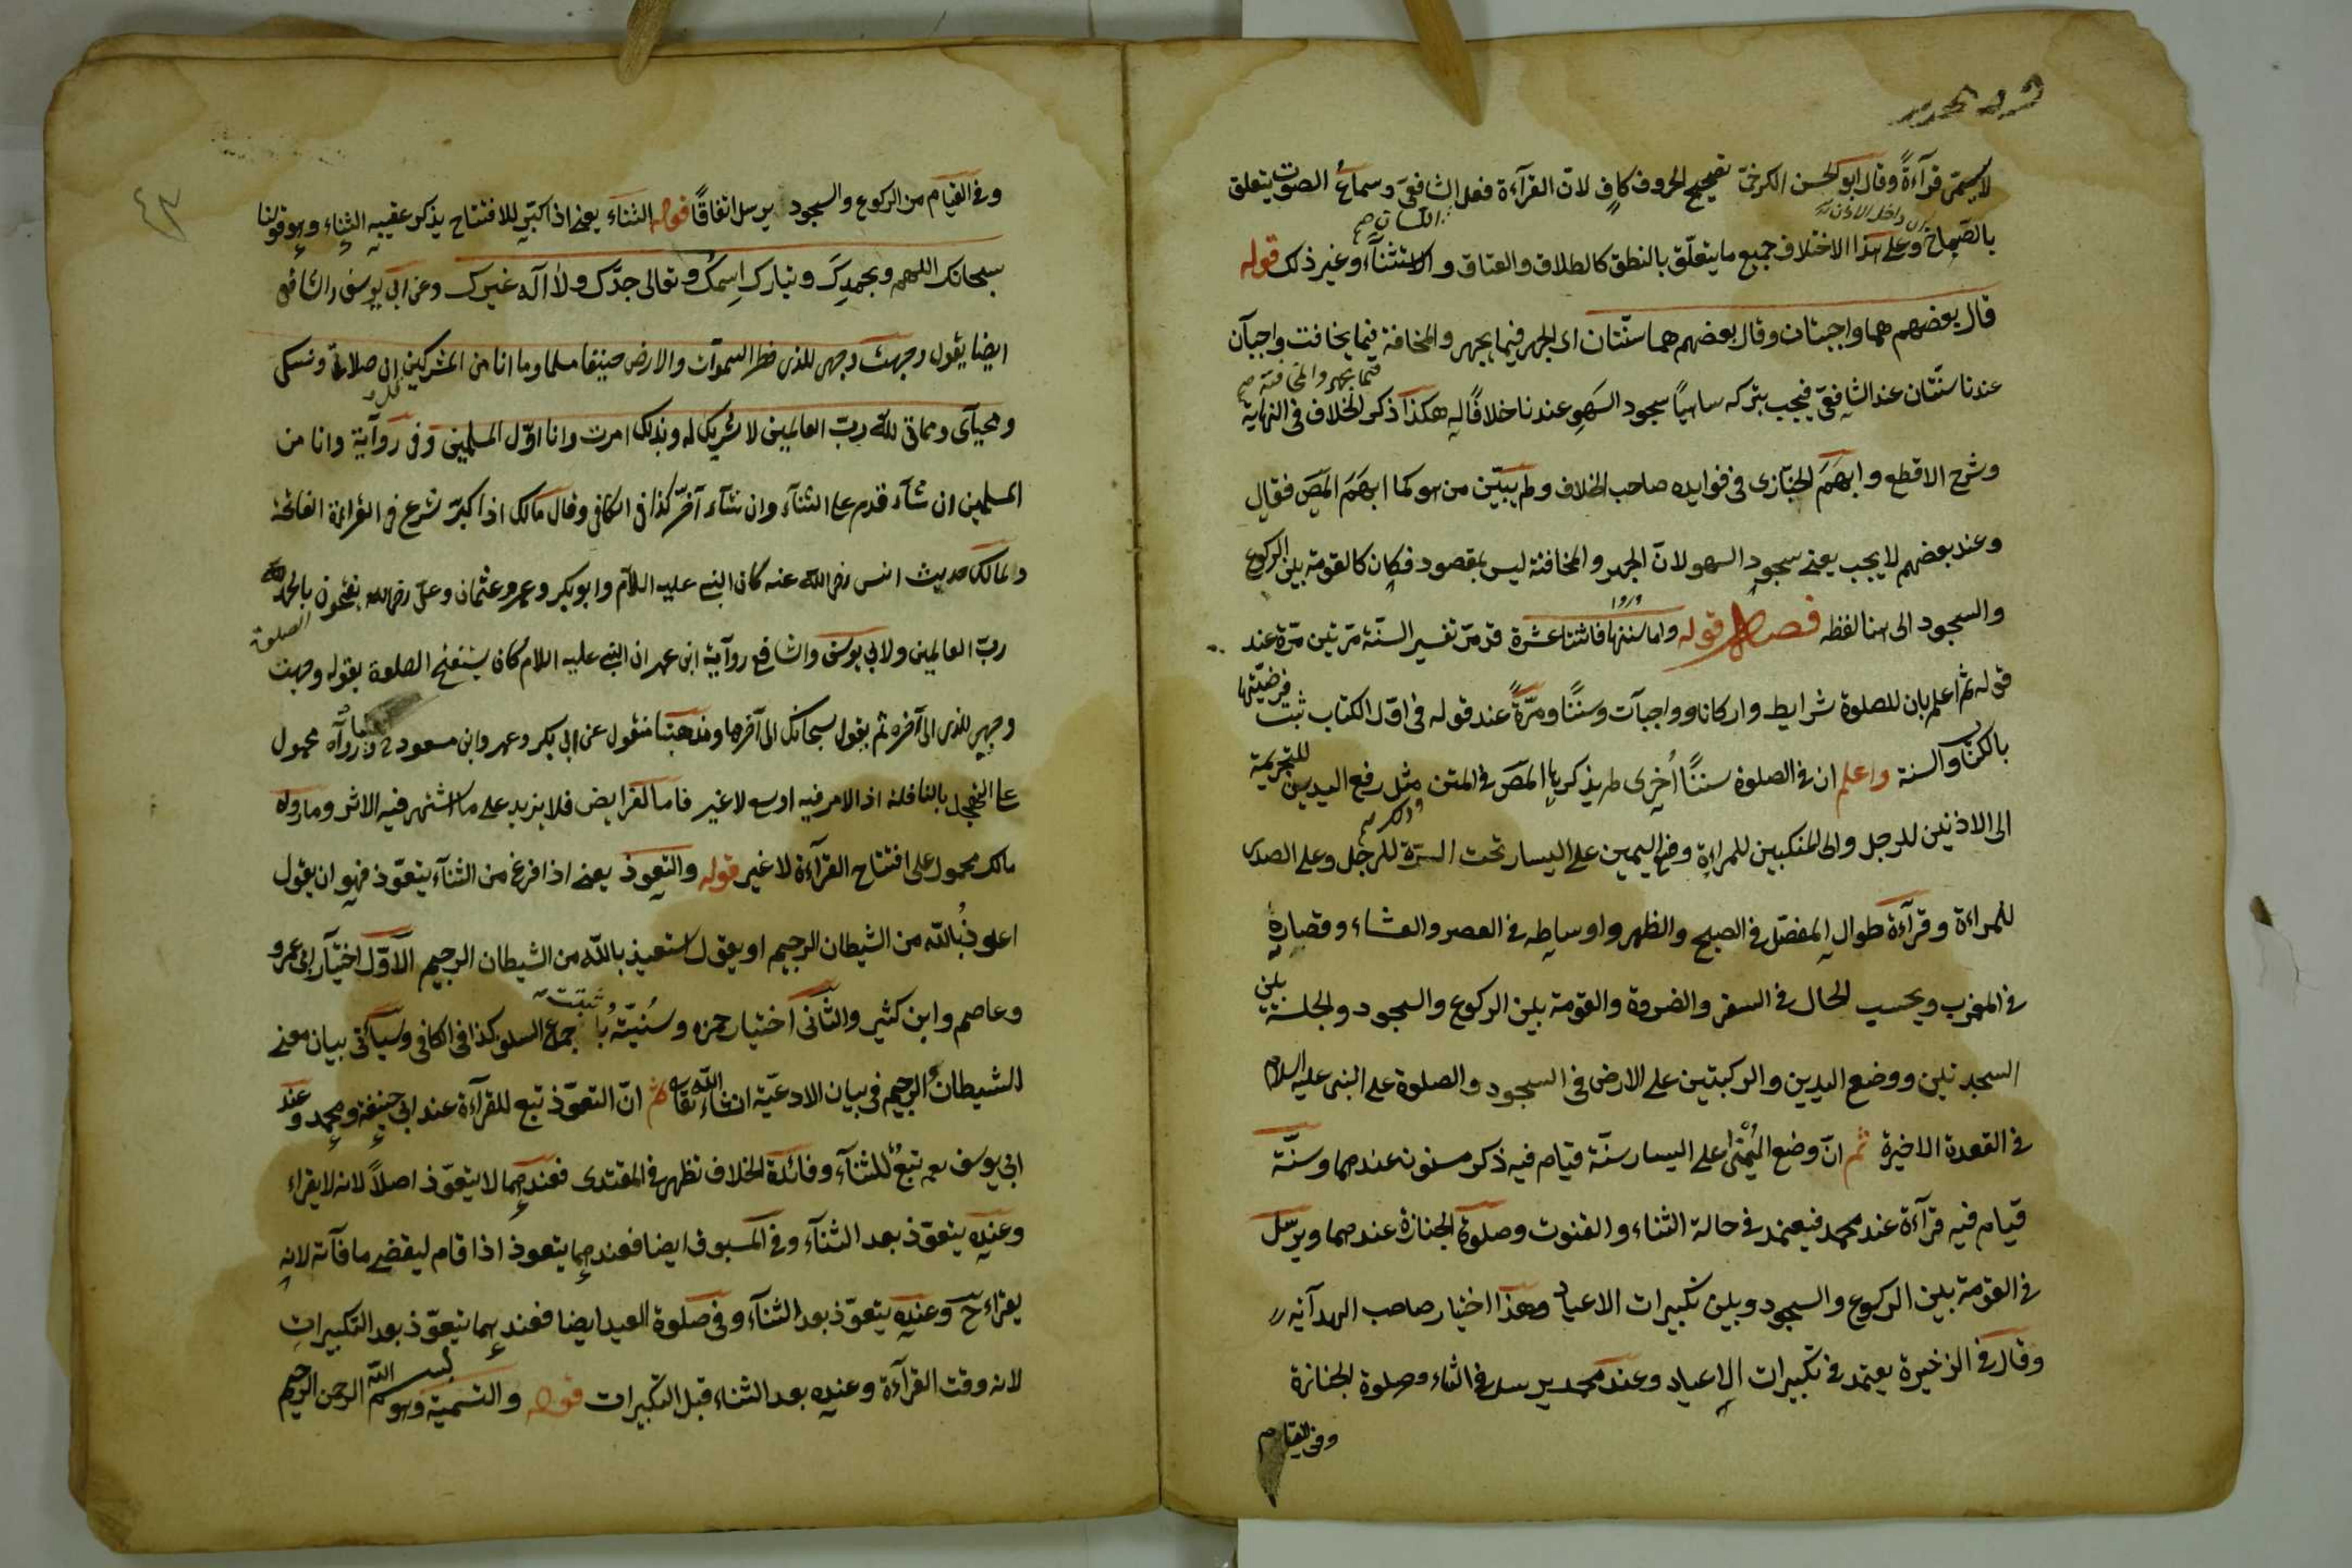 لا يسمى قرآءةً وقال ابو الحسن الكرخىّ تصحيح الحروف كافٍ لانّ القرآءة فعل اللسان وسماعُ الصوت يتعلق
بالصماخ وعلى هذا الاختلاف جميع ما يتعلّق بالنطق كالطلاق والعتاق والاستثنآء وغير ذلك قوله
قال بعضهم هما واجبتان وقال بعضهم هما سنّتان اى الجهر فيما يجهر والمخافتة فيما يخافت واجبان
عندنا سنّتان عند الشافعىّ فيجب بتركه ساهيًا سجود السهو عندنا خلافًا له هكذا ذكر الخلاف فى النهاية
وشرح الاقطع وابهَمَ الخبّازى فى فوايده صاحب الخلاف ولم يبيّن من هو كما ابهَمَ المص فقال
وعند بعضهم لا يجب يعنى سجود السهو لانّ الجهر والمخافتة ليس بمقصود فكان كالقومة بين الركوع
والسجود الى هنا لفظه فصل قوله واما سننها فاثنتا عشرة قد مرّ تفسير السنّة مرّتين مرّة عند
قوله ثم اعلم بان للصلوة شرايط واركانا وواجبآت وسننًا ومرّةً عند قوله فى اوّل الكتاب ثبت فرضيّتها
بالكتاب والسنة واعلم ان فى الصلوة سننًا اُخرى لم يذكرها المصَ فى المتن مثل رفع اليدين للتحريمة
الى الاذنين للرجل والى المنكبين للمراءة وضع اليمين على اليسار تحت السرّة للرجل وعلى الصدر
للمراءة وقرآءة طوال المفصّل فى الصبح والظهر واوساطه فى العصر والعشاء وقصاره
فى المغرب وبحسب الحال فى السفر والضرورة والقومة بين الركوع والسجود والجلسة بين
السجدتين ووضع اليدين والركبتين على الارض فى السجود والصلوة على النبى عليه السلام
فى القعدة الاخيرة ثم انّ وضع اليُمنَى على اليسار سنّة قيام فيه ذكر مسنون عندهما وسنّة
قيام فيه قرآءة عند محمد فيعتمد فى حالة الثناء والقنوت وصلوة الجنازة عندهما ويرسل
فى القومة بين الركوع والسجود وبين تكبيرات الاعياد وهذا اختيار صاحب الهدآية
وقال فى الذخيرة يعتمد فى تكبيرات الاعياد وعند محمد يرسل فى الثناء وصلوة الجنازة
وفى القيام
وفى القيام من الركوع والسجود يرسل اتفاقًا قوله الثنآء يعنى اذا كبّر للافتتاح يذكر عقيبه الثناء وهو قولنا
سبحانك اللهم وبحمدك وتبارك اسمك وتعالى جدّك ولا اله غيرك وعن ابى يوسف والشافعى
ايضا يقول وجهت وجهى للذى فطر السموآت والارض حنيفا مسلما وما انا من المشركين ان صلاتى ونسكى
ومحيآى ومماتى لله ربّ العالمين لا شريك له وبذلك امرت وانا اوّل المسلمين وفى روآية وانا من
المسلمين ان شآء قدم على الثنآء وان شآء اخّر كذا فى الكافى وقال مالك اذا كبّر شرع فى القراءة الفاتحة
ولمالك حديث انس رضى الله عنه كان النبى عليه السلام وابو بكر وعمر وعثمان وعلى رضى الله يفتتحون الصلوة بالحمد لله
ربّ العالمين ولابى يوسف والشافع روآية ابن عمر ان النبى عليه السلام كان يستفتح الصلوة بقوله وجهت
وجهى للذى الى آخره ثم يقول سبحانك الى آخرها ومذهبنا منقول عن ابى بكر وعمر وابن مسعود وما روآه محمول
على التهجد بالنافلة اذ الامر فيه اوسع لا غير فاما الفرايض فلا يزيد على ما اشتهر فيه الاثر وما رواه
مالك محمول على افتتاح القرآءة لا غير قوله والتعوذ يعنى اذا فرغ من الثنآء يتعوّذ فهو ان يقول
اعوذُ بالله من الشيطان الرجيم او يقول استعيذ بالله من الشيطان الرجيم الاوّل اختيار ابى عمرو
وعاصم وابن كثير والثانى اختيار حمزه وسُنيّته ثبتت باجماع السلف كذا فى الكافى وسيأتى بيان معنى
الشيطان الرجيم فى بيان الادعيّة انشاء الله تعالى ثم انّ التعوّذ تبع للقرآءة عند ابى حنيفة ومحمد وعند
ابى يوسف تبعٌ للثنآء وفائدة الخلاف تظهر فى المقتدى فعندهما لا يتعوّذ اصلاً لانه لا يقراء
وعنده يتعوّذ بعد الثنآء وفى المسبوق ايضا فعندهما يتعوذ اذا قام ليقضى ما فآته لانه
يقراء ح وعنده يتعوّذ بعد الثنآء وفى صلوة العيد ايضا فعندهما يتعوّذ بعد التكبيرات
لانه وقت القرآءة وعنده بعد الثناء قبل التكبيرات قوله والتسمية وهو بسم الله الرحمن الرحيم